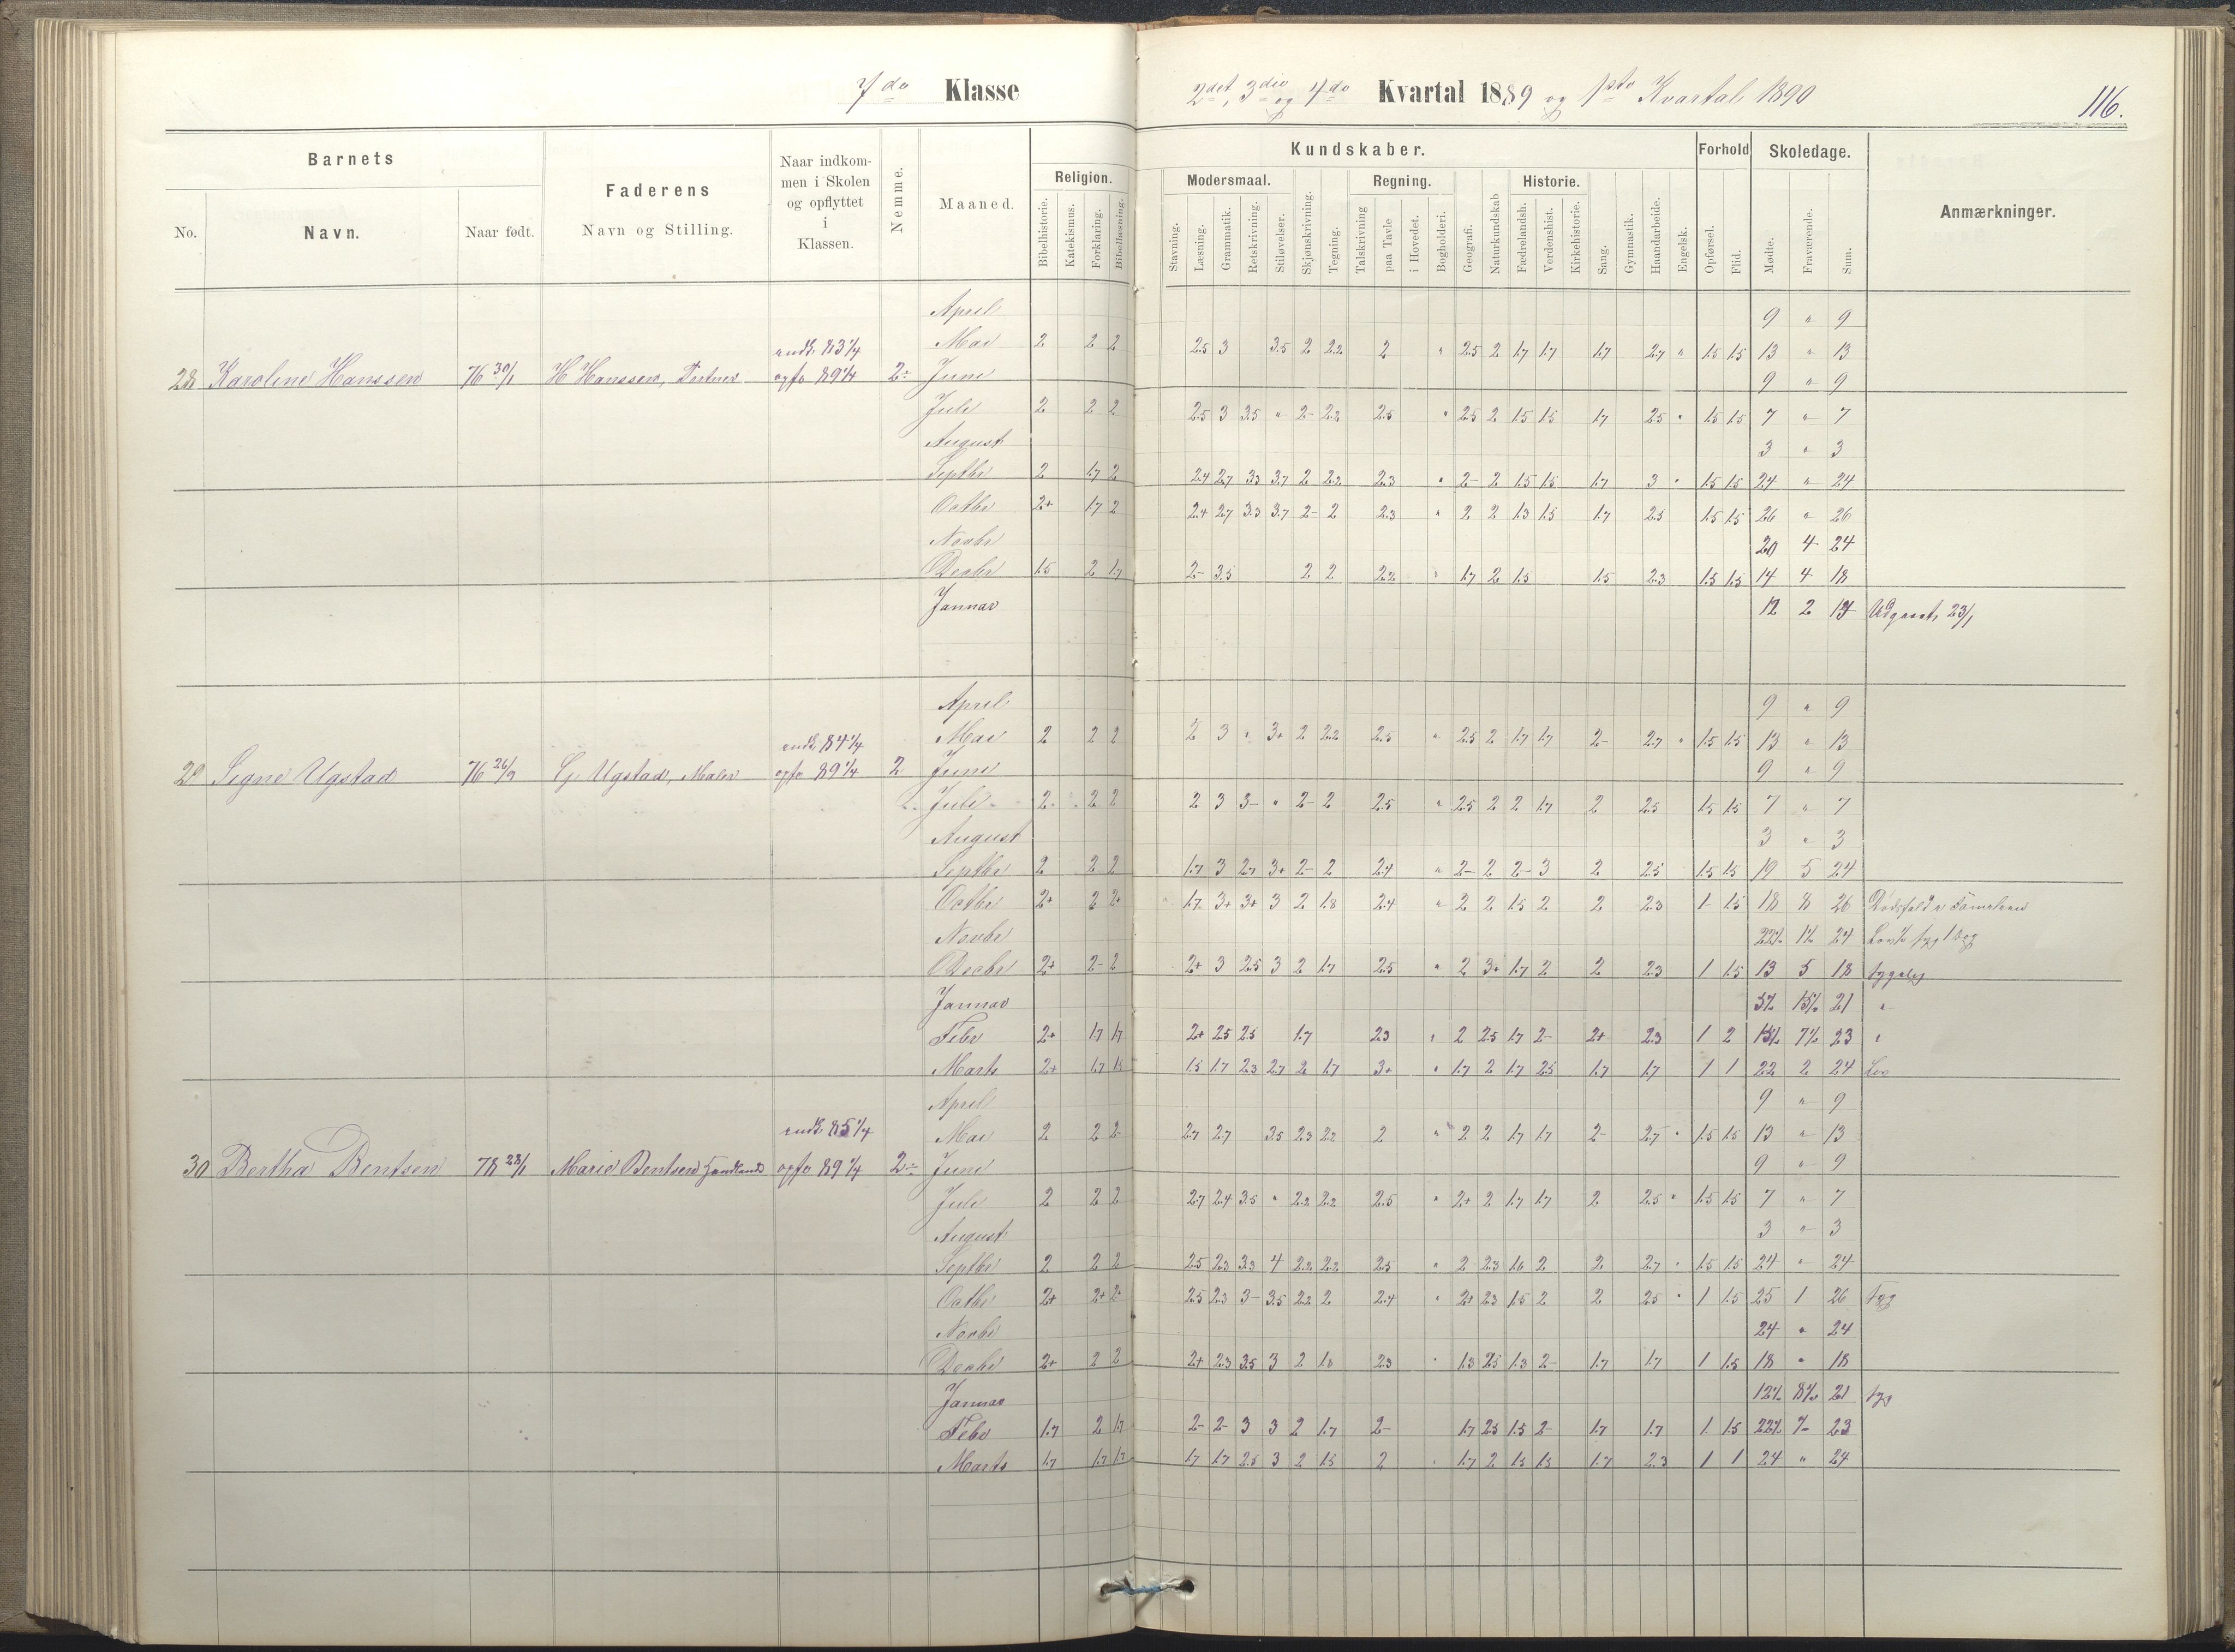 7de Klasse
2det, 3die og 4de Kvartal 1889 og 1ste Kvartal 1890
116.
Barnets
No.
Navn.
Naar født.
Faderens
Navn og Stilling.
Naar indkom-
men i Skolen
og opflyttet
i
Klassen.
Nemme.
Maaned.
Religion.
Bibelhistorie.
Katekismus.
Forklaring.
Bibellæsning.
Kundskaber.
Modersmaal.
Stavning.
Læsning.
Grammatik.
Retskrivning.
Stiløvelser.
Skjønskrivning.
Tegning.
Regning.
Talskrivning
paa Tavle
i Hovedet.
Bogholderi.
Geografi.
Naturkundskab
Historie.
Fædrelandsh.
Verdenshist.
Kirkehistorie.
Sang.
Gymnastik.
Haandarbeide.
Engelsk.
Forhold
Opførsel.
Flid.
Skoledage.
Mødte.
Fraværende.
Sum.
Anmærkninger.
April 9 " 9
indk. 83 1/4
Mai 2 2 2 2.5 3 3.5 2 2.2 2 " 2.5 2 1.7 1.7 1.7 2.7 " 1.5 1.5 13 " 13
28 Karoline Hanssen 76 30/1 H Hanssen, opfl 89 1/4 2÷ Juni 9 " 9
Juli 2 2 2 2.5 3 3.5 " 2- 2.2 2.5 " 2.5 2 1.5 1.5 1.7 2.5 " 1.5 1.5 7 " 7
August 3 " 3
Septbr 2 1.7 2 2.4 2.7 3.3 3.7 2 2.2 2.3 " 2- 2 1.5 1.5 1.7 3 " 1.5 1.5 24 " 24
Octbr 2+ 1.7 2 2.4 2.7 3.3 3.7 2- 2 2.3 " 2 2 1.3 1.5 1.7 2.5 1.5 1.5 26 " 26
Novbr 20 4 24
Decbr 1.5 2 1.7 2- 3.5 2 2 2.2 " 1.7 2 1.5 1.5 2.3 1.5 1.5 14 4 18
Januar 12 2 Udgaat, 23/1
April 9 " 9
indk. 84 1/4
Mai 2 2 2 2 3 " 3+ 2 2.2 2.5 " 2.5 2 1.7 1.7 2- 2.7 " 1.5 1.5 13 " 13
29 Signe Ugstad 76 26/9 G. Ugstad, Maler opfl 89 1/4 2 Juni 9 " 9
Juli 2 2 2 2 3 3- " 2- 2 2.5 " 2.5 2 2 1.7 2 2.5 1.5 1.5 7 " 7
August 3 " 3
Septbr 2 2 2 1.7 3 2.7 3+ 2- 2 2.4 " 2- 2 2- 3 2 2.5 1.5 1.5 19 5 24
Octbr 2+ 2 2+ 1.7 3+ 3+ 3 2 1.8 2.4 " 2 2 1.5 2 2 2.3 1 1.5 18 8 26 Dødsfald i
Novbr 22½ 1½ 24
Decbr 2+ 2- 2 2+ 3 2.5 3 2 1.7 2.5 " 2 3+ 1.7 2 2 2.3 1 1.5 13 5 18
Januar 5½ 15½ 21 "
Febr 2+ 1.7 1.7 2+ 2.5 2.5 1.7 2.3 " 2 2.5 1.7 2- 2+ 2.3 1 2 15½ 7½ 23 "
Marts 2+ 1.7 1.5 1.5 1.7 2.3 2.7 2 1.7 3+ " 1.7 2 1.7 2.5 1.7 1.7 1 1 22 2 24 Lov
April 9 " 9
indk. 85 1/4
Mai 2 2 2- 2.7 2.7 3.5 2.3 2.2 2 " 2 2 1.7 1.7 2- 2.7 " 1.5 1.5 13 " 13
30 Bertha Bentsen 78 28/1 Marie Bentsen opfl 89 1/4 2÷ Juni 9 " 9
Juli 2 2 2 2.7 2.4 3.5 " 2.2 2.2 2.5 " 2+ 2 1.7 1.7 2 2.5 " 1.5 1.5 7 " 7
August 3 " 3
Septbr 2 2 2 2.5 2.3 3.3 4 2.2 2.2 2.5 " 2 2.3 1.6 2 2 2.7 " 1.5 1.5 24 " 24
Octbr 2+ 2+ 2+ 2.5 2.3 3- 3.5 2.2 2 2.4 " 2+ 2.3 1.5 2 2 2.5 " 1 1.5 25 1 26 Syg
Novbr 24 " 24
Decbr 2+ 2 2 2+ 2.3 3.5 3 2 1.8 2.3 " 1.3 2.5 1.3 2- 1.7 1.7 1 1.5 18 " 18
Januar 12½ 8½ 21 syg
Febr 1.7 2 1.7 2- 2- 3 3 2 1.7 2- 1.7 2.5 1.5 2- 1.7 1.7 1 1.5 22½ ½ 23
Marts 1.7 1.7 1.7 1.7 1.7 2.5 3 2 1.5 2 " 1.7 2 1.5 1.5 1.7 2.3 1 1 24 " 24